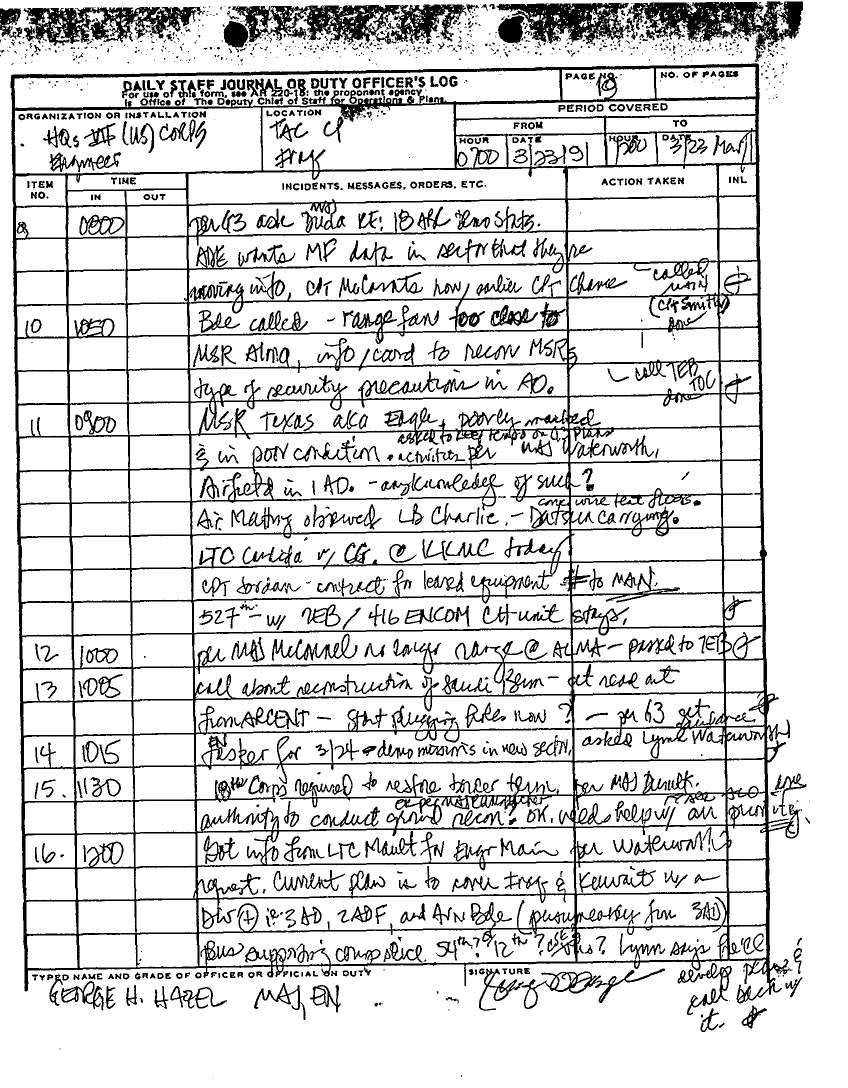 DAILY STAFF JOURNAL OR DUTY OFFICER'S LOG
For use of this form, see AR 220-15; the proponent agency
is Office of The Deputy Chief of Staff for Operations & Plans.
PAGE NO.
NO. OF PAGES
ORGANIZATION OR INSTALLATION
HQs VII (US) CORPS
Engineers
LOCATION
TAC CP
Iraq
PERIOD COVERED
FROM
TO
HOUR
0700
DATE
3/23/91
HOUR
1200
DATE
3/23 Mar
ITEM NO.
TIME
IN
OUT
INCIDENTS, MESSAGES, ORDERS, ETC.
ACTION TAKEN
INL
0800
per G3 ask RE: 18 ABC demo stats.
ADE wants MF data in sector that they're
moving into, CPT now, earlier CPT Chance
called
(CPT Smith)
done
10
1050
Bde called - range fans too close to
MSR Alma, info/coord to recon MSRs
type of security precautions in AO.
call 7EB
TOC
done
11
0900
MSR Texas aka Eagle, poorly marked
& in poor condition. activities per MAJ Waterworth,
asked to keep tempo on plans
Airfield in 1 AD. - any knowledge of such?
Air Matting observed LB Charlie. - Datsun carrying.
LTC w/ CG. @ KKMC today
CPT Jordan - contract for leased equipment to MAIN.
527th - w/ 7EB / 416 ENCOM CH-unit stays.
12
1000
per MAJ McConnel no longer range @ ALMA - passed to 7EB
13
1005
call about reconstruction of Saudi Berm - get read out
from ARCENT - start plugging holes now? - per G3 get guidance
14
1015
for 3/24 demo missions in new sector, asked Lynn Waterworth
15.
1130
18th Corps required to restore berm, per MAJ
authority to conduct ground recon? OK. needs help w/ air
16.
1200
Got info from LTC Mault for Engr Main per Waterworth's
request. Current plan is to cover Iraq & Kuwait w/ a
Div (+) ie 3AD, 2ADF, and Avn Bde (presumeably from 3AD)
Bus supporting corps slice 54th? or 12th? Lynn says he'll
develop plan &
call back w/
it.
TYPED NAME AND GRADE OF OFFICER OR OFFICIAL ON DUTY
GEORGE H. HAZEL MAJ, EN
SIGNATURE